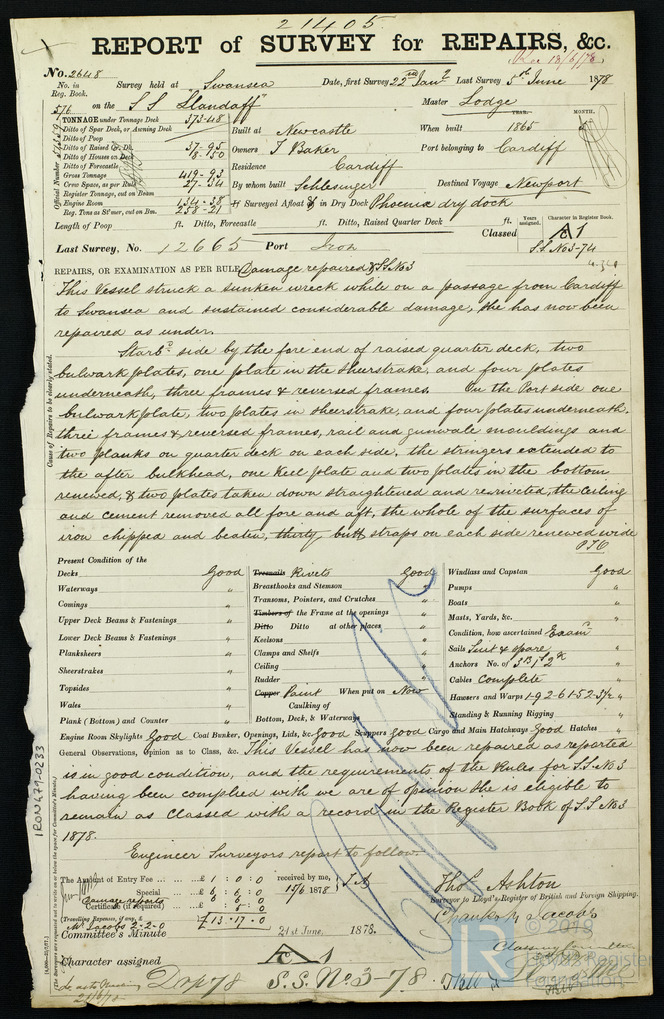 21405
REPORT of SURVEY for REPAIRS, &c.
Rec 18/6/78
No. 2648
No. in Reg. Book.
Survey held at Swansea Date, first Survey 22nd Jany Last Survey 5th June 1878
576 on the S S "Llandaff" Master Lodge
TONNAGE under Tonnage Deck 373.48
Ditto of Spar Deck, or Awning Deck
Ditto of Poop
Ditto of Raised Qr. Dk. 37.95
Ditto of Houses on Deck 8.50
Ditto of Forecastle
Gross Tonnage 419.93
Crew Space, as per Rule 27.34
Register Tonnage, cut on Beam
Engine Room 134.38
Reg. Tons as St'mer, cut on Bm. 258.21
Official Number
YEAR. MONTH.
Built at Newcastle When built 1865 5
Owners T Baker Port belonging to Cardiff
Residence Cardiff
By whom built Schlesinger Destined Voyage Newport
If Surveyed Afloat or in Dry Dock Phoenix dry dock
Length of Poop ft. Ditto, Forecastle ft. Ditto, Raised Quarter Deck ft.
Years assigned. Character in Register Book.
Classed A 1
S.S. No 3-74
Last Survey, No. 12665 Port Iron
REPAIRS, OR EXAMINATION AS PER RULE, Damage repaired & S.S. No 3
This Vessel struck a sunken wreck while on a passage from Cardiff
to Swansea and sustained considerable damage, she has now been
repaired as under.
Starbd side by the fore end of raised quarter deck, two
bulwark plates, one plate in the sheerstrake, and four plates
underneath, three frames & reversed frames. On the Port side one
bulwark plate, two plates in sheerstrake, and four plates underneath.
three frames & reversed frames, rail and gunwale mouldings and
two planks on quarter deck on each side. the stringers extended to
the after bulkhead, one Keel plate and two plates in the bottom
renewed, & two plates taken down straightened and reriveted, the Ceiling
and cement removed all fore and aft, the whole of the surfaces of
iron chipped and beaten, thirty butt straps on each side renewed wide
PTO
Cause of Repairs to be clearly stated.
Present Condition of the
Decks Good
Waterways "
Comings "
Upper Deck Beams & Fastenings "
Lower Deck Beams & Fastenings "
Planksheers "
Sheerstrakes "
Topsides "
Wales "
Plank (Bottom) and Counter "
Treenails Rivets Good
Breasthooks and Stemson "
Transoms, Pointers, and Crutches "
Timbers of the Frame at the openings "
Ditto Ditto at other places "
Keelsons "
Clamps and Shelfs "
Ceiling "
Rudder "
Copper Paint When put on Now
Caulking of
Bottom, Deck, & Waterways "
Windlass and Capstan Good
Pumps "
Boats "
Masts, Yards, &c. "
Condition, how ascertained Examd
Sails Suit & spare
Anchors No. of 3B 1S 2K
Cables Complete "
Hawsers and Warps 1-9 2-6 1-5 2-3½ "
Standing & Running Rigging "
Engine Room Skylights Good Coal Bunker, Openings, Lids, &c. Good Scuppers Good Cargo and Main Hatchways Good Hatches "
General Observations, Opinion as to Class, &c. This Vessel has now been repaired as reported
is in good condition, and the requirements of the Rules for S.S. No 3
having been complied with we are of opinion she is eligible to
remain as Classed with a record in the Register Book of S.S No 3
1878.
Engineer Surveyors report to follow.
The Amount of Entry Fee ... £ 1 : 0 : 0 received by me,
Special ... £ 6 : 6 : 0 15/6 1878
Damage reports
Certificate (if required)
(Travelling Expenses, if any, £ £13.17.0
Mr Jacobs 2-2-0
Thos Ashton
Surveyor to Lloyd's Register of British and Foreign Shipping.
Charles N Jacobs
Committee's Minute 21st June, 1878.
Character assigned A 1
Drp 78 S.S. No 3-78
21/6/78
IRON479-0233
© 2019
LR
Lloyd's Register
Foundation